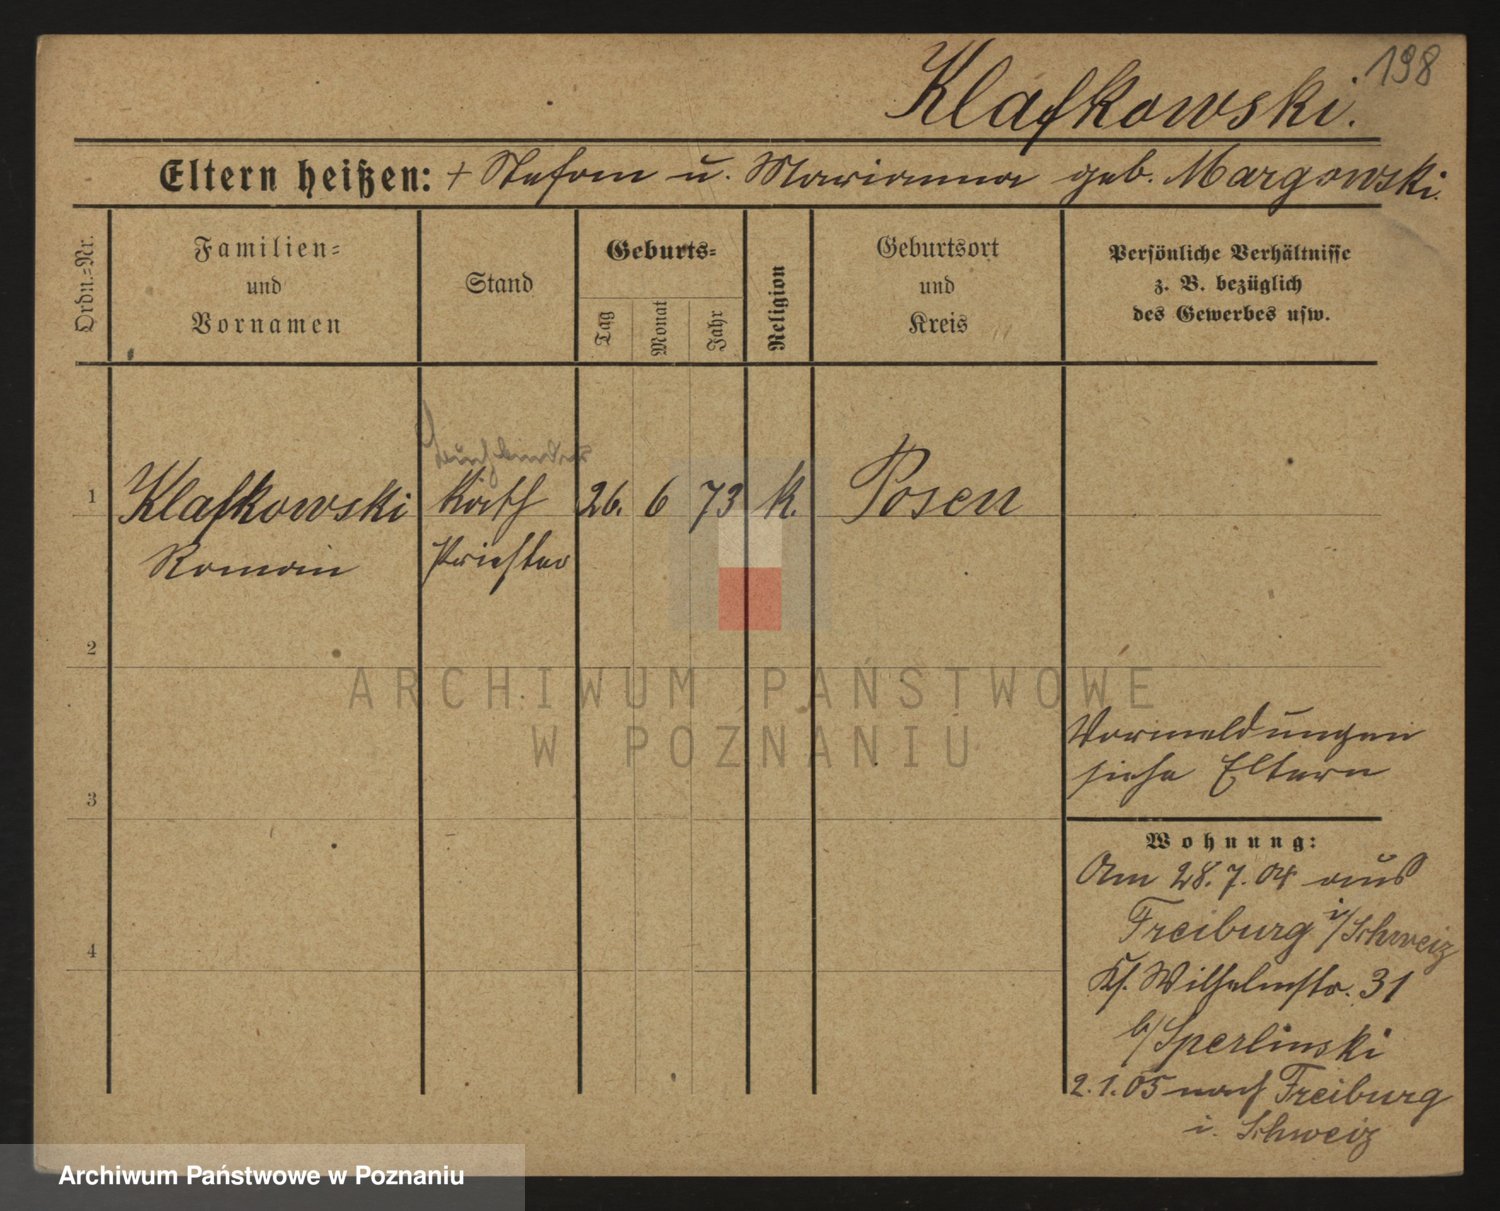 198
Klafkowski.
Eltern heißen: + Stefan u. Marianna geb. Margowski.
Ordn.=Nr.
Familien=
und
Vornamen
Stand
Geburts=
Tag
Monat
Jahr
Religion
Geburtsort
und
Kreis
Persönliche Verhältnisse
z. B. bezüglich
des Gewerbes usw.
Buchbinder
1 Klafkowski Kath 26. 6 73 K. Posen
Roman Priester
2
3
4
Vormeldungen
siehe Eltern
Wohnung:
Am 28.7.04 aus
Freiburg i/Schweiz
Kl. Wilhelmstr. 31
b/Sperlinski
2.1.05 nach Freiburg
i. Schweiz
ARCHIWUM PAŃSTWOWE
W POZNANIU
Archiwum Państwowe w Poznaniu